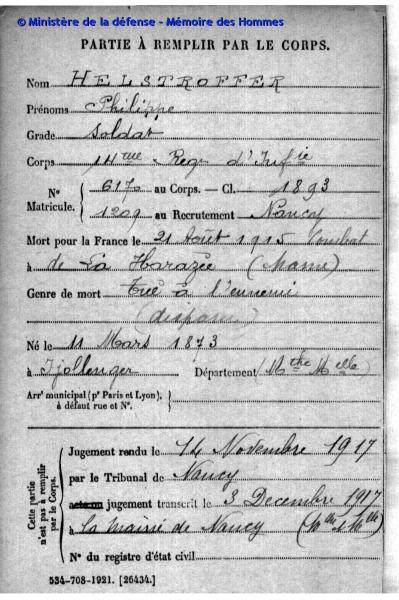 © Ministère de la défense - Mémoire des Hommes
PARTIE À REMPLIR PAR LE CORPS.
Nom HELSTROFFER
Prénoms Philippe
Grade Soldat
Corps 14ème Regt d'Infie
N° Matricule. { 6170 au Corps. — Cl. 1893
1209 au Recrutement Nancy
Mort pour la France le 21 Août 1915 Combat
à de La Harazée (Marne)
Genre de mort Tué à l'ennemi
(disparu)
Né le 11 Mars 1873
à Département (Mthe Melle)
Arrt municipal (pr Paris et Lyon), à défaut rue et N°. }
Cette partie n'est pas à remplir par le Corps.
Jugement rendu le 14 Novembre 1917
par le Tribunal de Nancy
acte ou jugement transcrit le 3 Decembre 1917
à La mairie de Nancy (Mthe & Mlle)
N° du registre d'état civil
534-708-1921. [26434.]